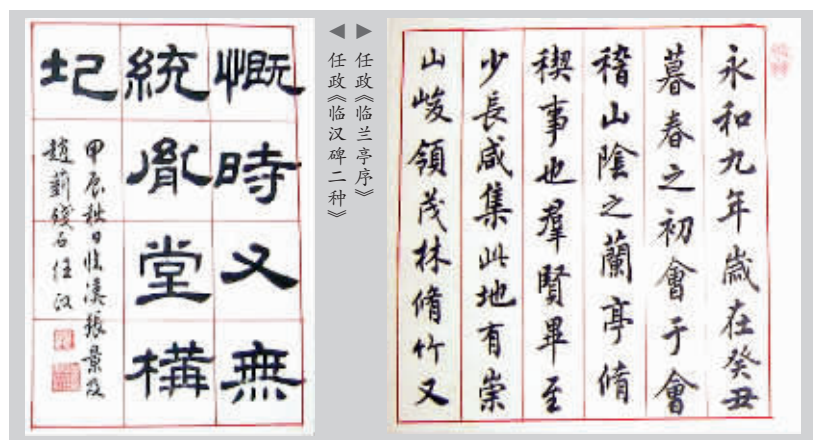 慨時又無
統胤堂構
圮
甲辰秋日临漢張景及
趙菿殘石任政
▶任政《临兰亭序》
◀任政《临汉碑二种》
永和九年歲在癸丑
暮春之初會于會
稽山陰之蘭亭脩
禊事也羣賢畢至
少長咸集此地有崇
山峻領茂林脩竹又